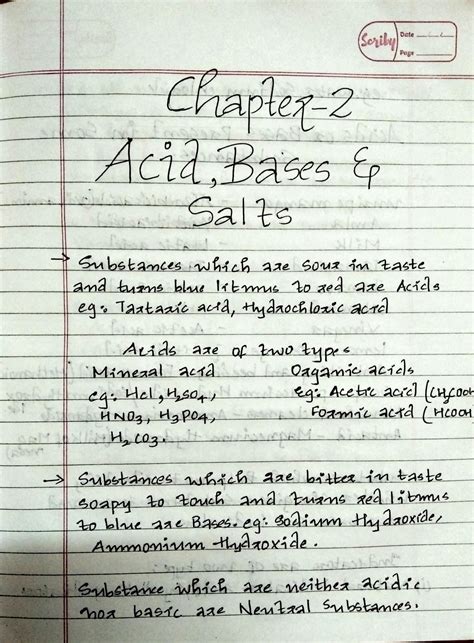 Scriby
Date
Page
Chapter-2
Acid, Bases &
Salts
→ Substances which are sour in taste
and turns blue litmus to red are Acids
eg: Tartaric acid, Hydrochloric acid
Acids are of two types
Mineral acid Organic acids
eg: Hcl, H2SO4, Eg: Acetic acid (CH3COOH
HNO3, H3PO4, Formic acid (HCOOH
H2CO3.
→ Substances which are bitter in taste
soapy to touch and turns red litmus
to blue are Bases. eg: Sodium Hydroxide,
Ammonium Hydroxide.
Substance which are neither acidic
nor basic are Neutral Substances.